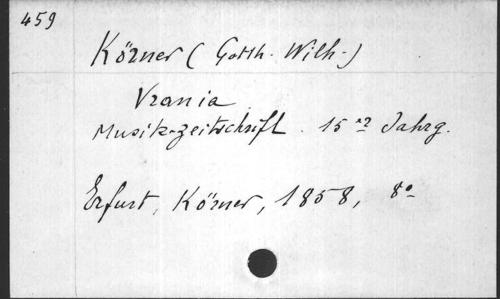 459
Körner (Gotth. Wilh.)
Vrania
Musik-zeitschrift. 15 Jahrg.
Erfurt, Körner, 1858, 8°